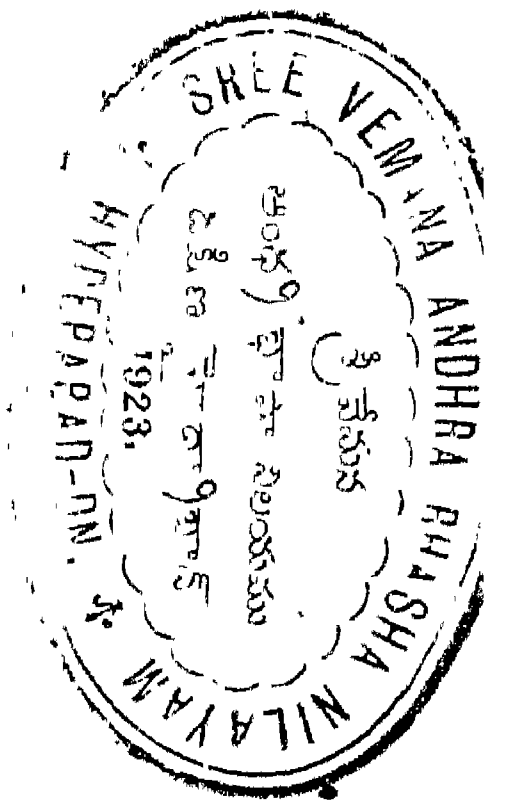 SREE VEMANA ANDHRA BHASHA NILAYAM
శ్రీ వేమన
ఆంధ్ర భాషా నిలయము
1923.
HYDERABAD-DN.